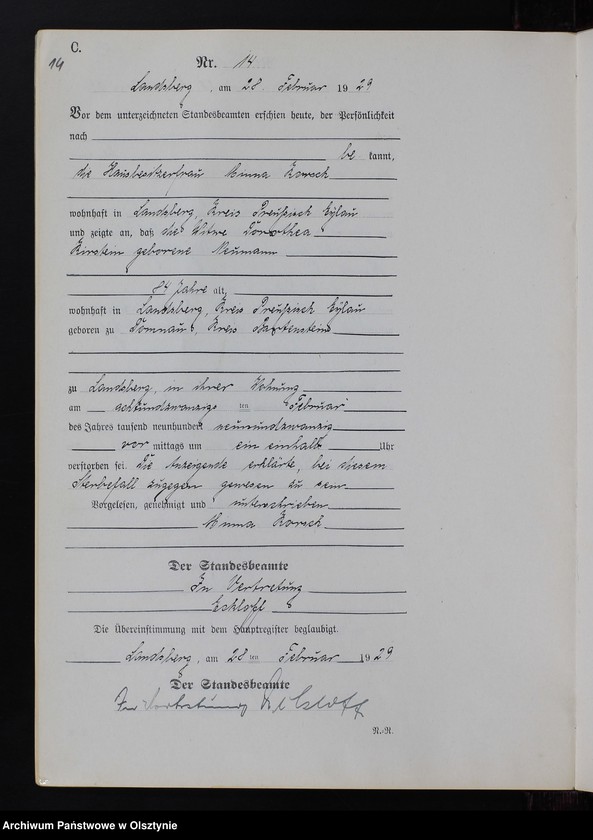 C.
14
Nr. 14
Landsberg, am 28. Februar 1929
Vor dem unterzeichneten Standesbeamten erschien heute, der Persönlichkeit
nach
be kannt,
die Hausbesitzerfrau Anna Korsch
wohnhaft in Landsberg, Kreis Preußisch Eylau
und zeigte an, daß die Witwe Dorothea
Kirstein geborene Neumann
84 Jahre alt,
wohnhaft in Landsberg, Kreis Preußisch Eylau
geboren zu Domnau, Kreis Bartenstein
zu Landsberg, in ihrer Wohnung
am achtundzwanzigs ten Februar
des Jahres tausend neunhundert neunundzwanzig
vor mittags um ein einhalb Uhr
verstorben sei. Die Anzeigende erklärte, bei diesem
Sterbefall zugegen gewesen zu sein
Vorgelesen, genehmigt und unterschrieben
Anna Korsch
Der Standesbeamte
In Vertretung
Eschloff
Die Übereinstimmung mit dem Hauptregister beglaubigt.
Landsberg, am 28 ten Februar 1929
Der Standesbeamte
In Vertretung
N.-R.
Archiwum Państwowe w Olsztynie